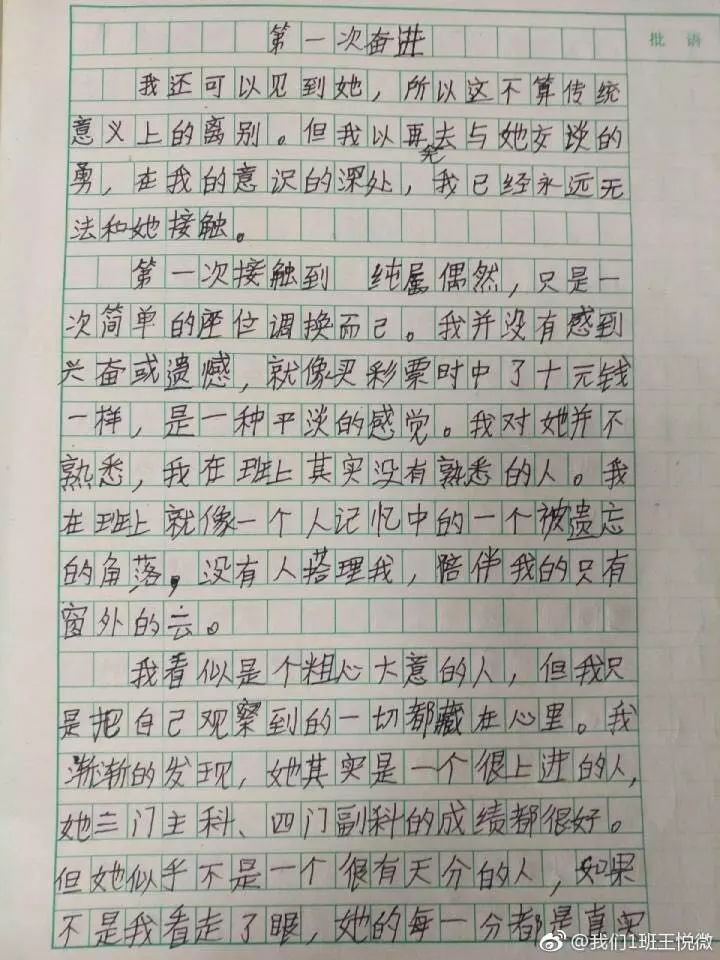 第一次奋进
批语
我还可以见到她，所以这不算传统
意义上的离别。但我以再去与她交谈的
勇，在我的意识的深处，我已经永远无
法和她接触。
第一次接触到 纯属偶然，只是一
次简单的座位调换而己。我并没有感到
兴奋或遗憾，就像买彩票时中了十元钱
一样，是一种平淡的感觉。我对她并不
熟悉，我在班上其实没有熟悉的人。我
在班上就像一个人记忆中的一个被遗忘
的角落，没有人搭理我，陪伴我的只有
窗外的云。
我看似是个粗心大意的人，但我只
是把自己观察到的一切都藏在心里。我
渐渐的发现，她其实是一个很上进的人，
她三门主科、四门副科的成绩都很好。
但她似乎不是一个很有天分的人，如果
不是我看走了眼，她的每一分都是真实
@我们1班王悦微